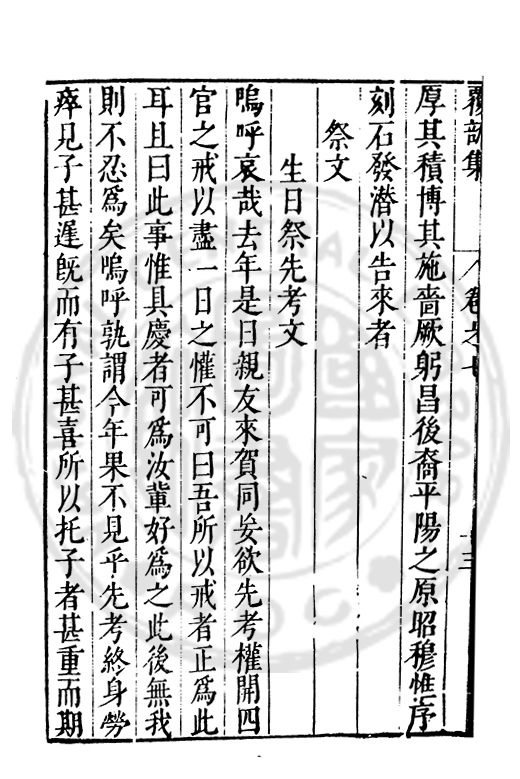 覆瓿集　卷之七　十三
厚其積博其施嗇厥躬昌後裔平陽之原昭穆惟序
刻石發潛以告來者
祭文
生日祭先考文
嗚呼哀哉去年是日親友來賀同妾欲先考權開四
官之戒以盡一日之懽不可曰吾所以戒者正爲此
耳且曰此事惟具慶者可爲汝輩好爲之此後無我
則不忍爲矣嗚呼孰謂今年果不見乎先考終身勞
瘁見子甚遲旣而有子甚喜所以托子者甚重而期